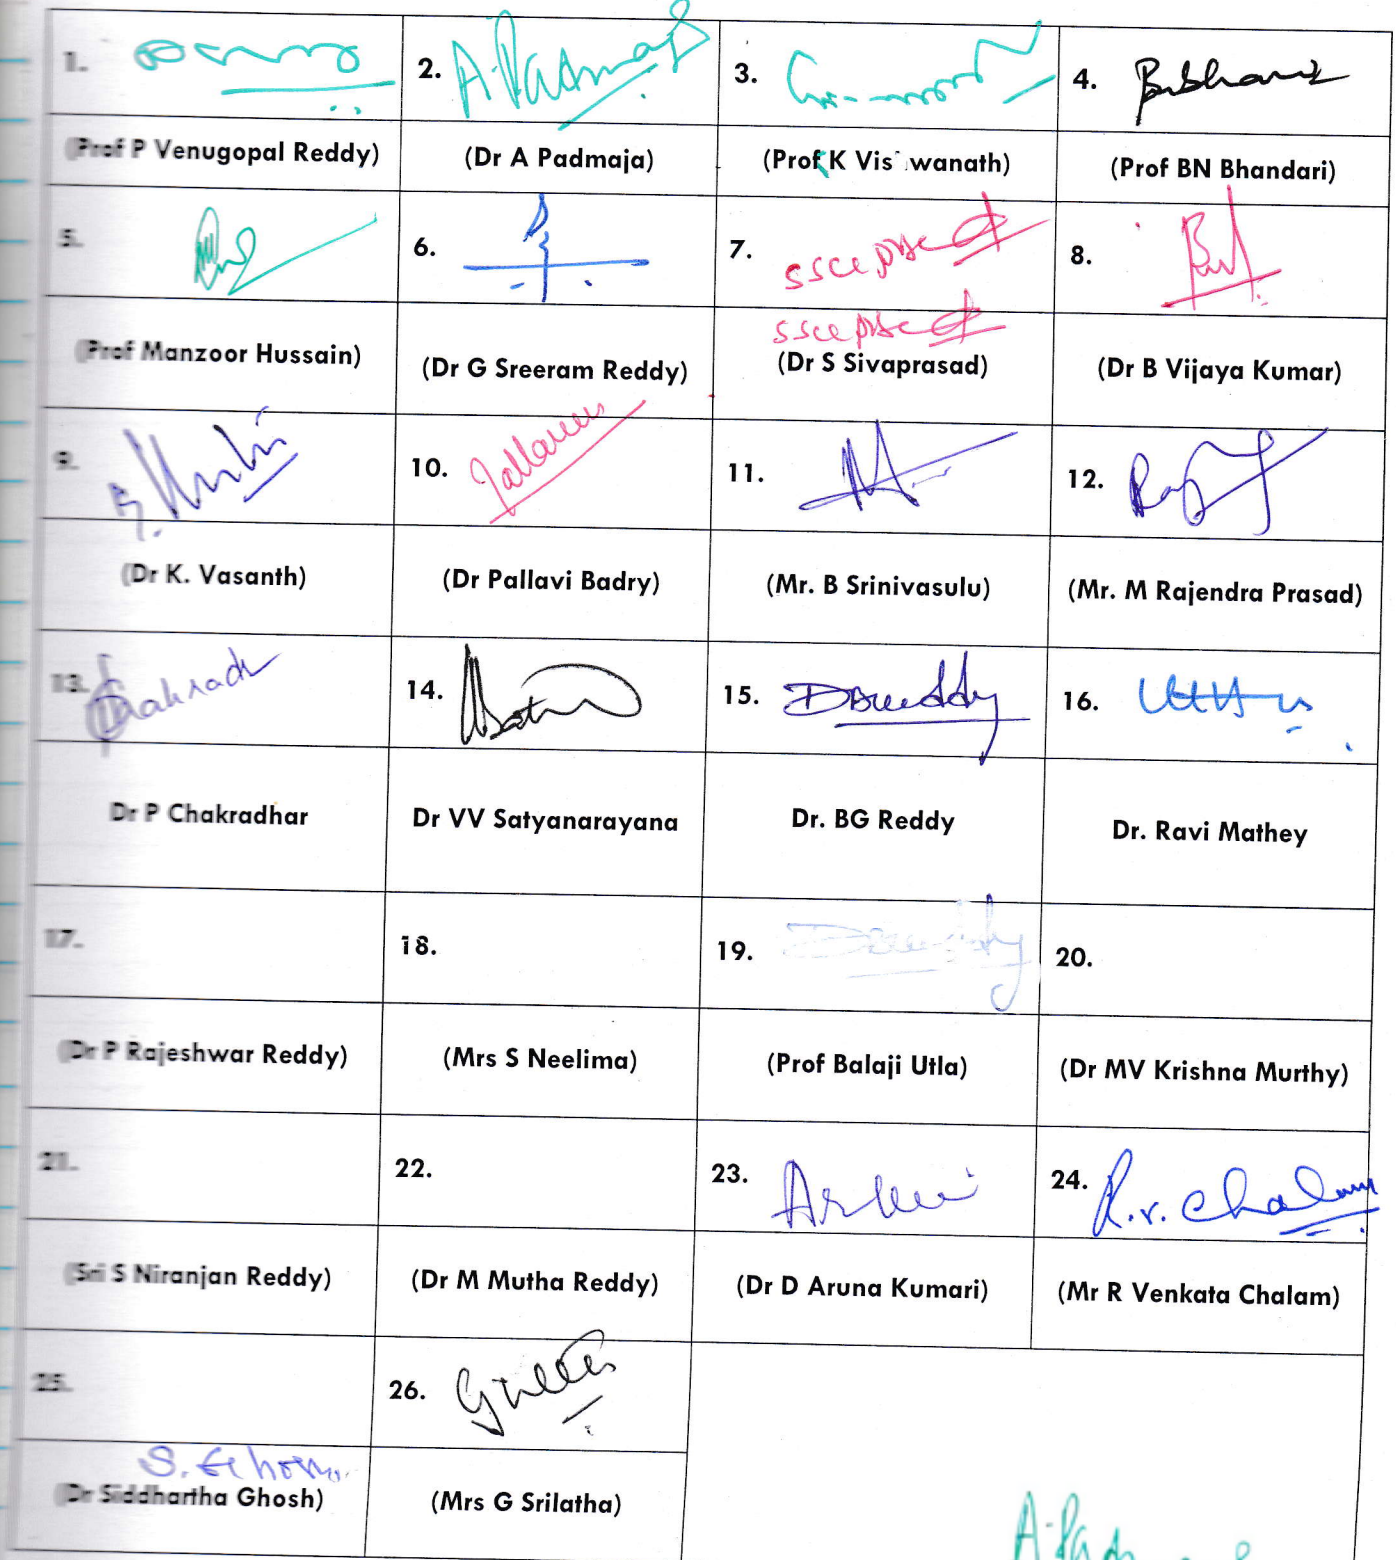 1. 2. A. Padmaja 3. 4. BBhandari
(Prof P Venugopal Reddy) (Dr A Padmaja) (Prof K Vis wanath) (Prof BN Bhandari)
5. 6. 7. 8.
(Prof Manzoor Hussain) (Dr G Sreeram Reddy) (Dr S Sivaprasad) (Dr B Vijaya Kumar)
9. 10. 11. 12.
(Dr K. Vasanth) (Dr Pallavi Badry) (Mr. B Srinivasulu) (Mr. M Rajendra Prasad)
13. Chakradh 14. 15. 16.
Dr P Chakradhar Dr VV Satyanarayana Dr. BG Reddy Dr. Ravi Mathey
17. 18. 19. 20.
(Dr P Rajeshwar Reddy) (Mrs S Neelima) (Prof Balaji Utla) (Dr MV Krishna Murthy)
21. 22. 23. 24. R.V. Chalam
(Sri S Niranjan Reddy) (Dr M Mutha Reddy) (Dr D Aruna Kumari) (Mr R Venkata Chalam)
25. 26.
S. Ghosh
(Dr Siddhartha Ghosh) (Mrs G Srilatha)